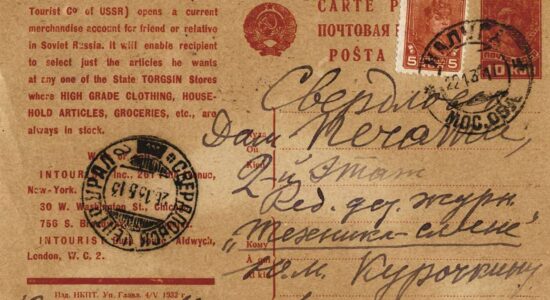 Tourist Co of USSR) opens a current
merchandise account for friend or relative
in Soviet Russia. It will enable recipient
to select just the articles he wants
at any one of the State TORGSIN Stores
where HIGH GRADE CLOTHING, HOUSE-
HOLD ARTICLES, GROCERIES, etc., are
always in stock.
INTOURIST Inc., 261 nue,
New-York.
30 W. Washington St., Chica
756 S. B
INTOURIST Aldwych,
London, W. C. 2.
Изд. НКПТ. Уп. Главл. 4/V 1932 г.
CARTE P
ПОЧТОВАЯ
POŠTA
5 5
10 КОП
КАЛУГА
МОС. ОБЛ
СВЕРДЛОВСК
УРАЛ
Свердловск
Дом Печати
2-й Этаж
Ред. дет. журн.
"Техника-смене"
Ю. М. Курочкину
Куда
Où
Кому